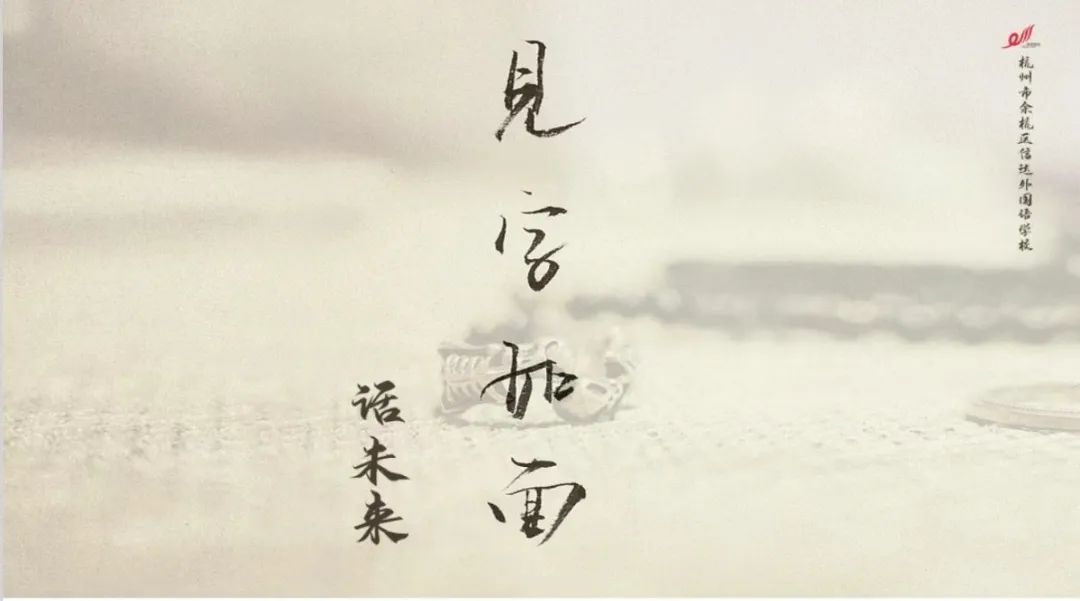 杭州市余杭区信达外国语学校
見字如面
话未来